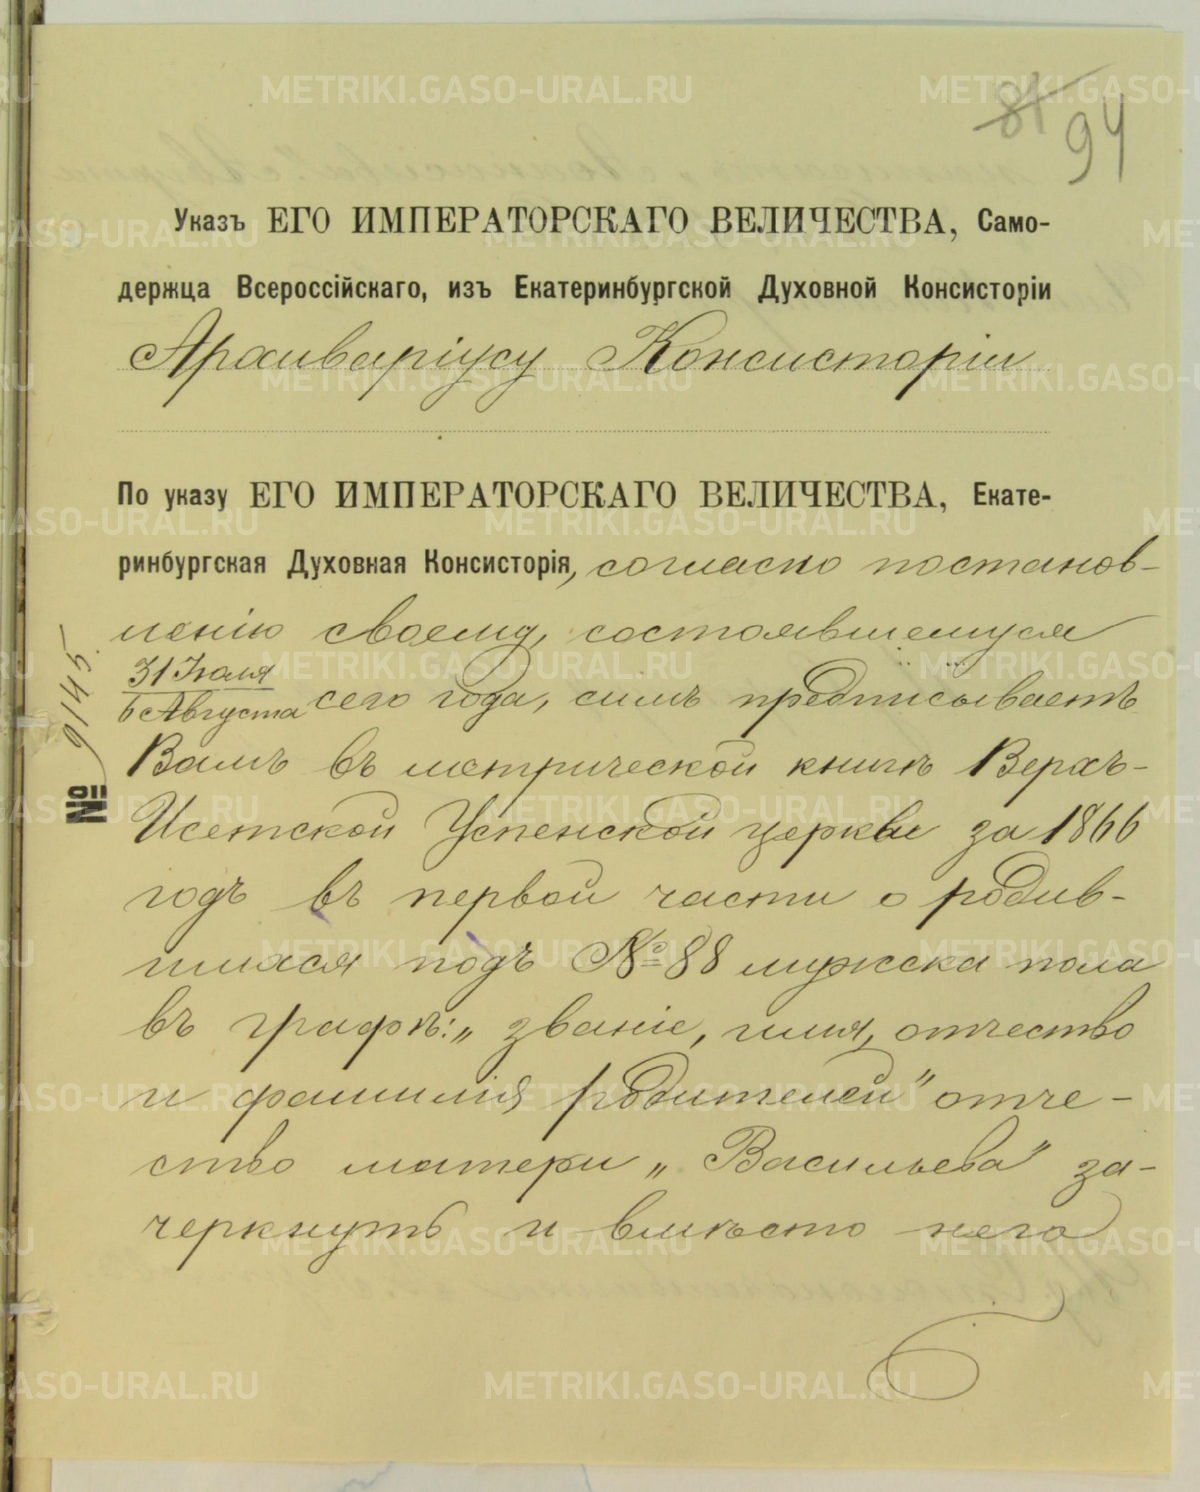 84
94
Указъ ЕГО ИМПЕРАТОРСКАГО ВЕЛИЧЕСТВА, Само-
держца Всероссійскаго, изъ Екатеринбургской Духовной Консисторіи
Архиваріусу Консисторіи
По указу ЕГО ИМПЕРАТОРСКАГО ВЕЛИЧЕСТВА, Екате-
ринбургская Духовная Консисторія, согласно постанов-
ленію своему, состоявшемуся
31 Іюля
6 Августа сего года, симъ предписываетъ
Вамъ въ метрической книгѣ Верхъ-
Исетской Успенской церкви за 1866
годъ въ первой части о родив-
шихся подъ № 88 мужска пола
въ графѣ: „званіе, имя, отчество
и фамилія родителей" отче-
ство матери „Васильева" за-
черкнуть и вмѣсто него
№ 9145
METRIKI.GASO-URAL.RU